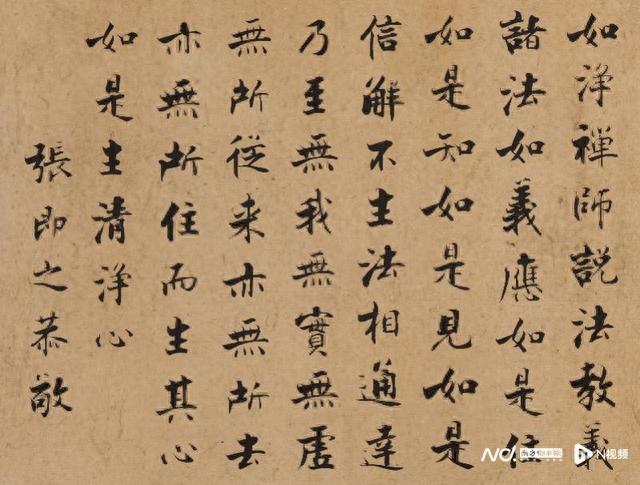 如淨禪師説法教義
諸法如義應如是住
如是知如是見如是
信解不生法相通達
乃至無我無實無虛
無所從来亦無所去
亦無所住而生其心
如是生清淨心
張即之恭敬
N视频